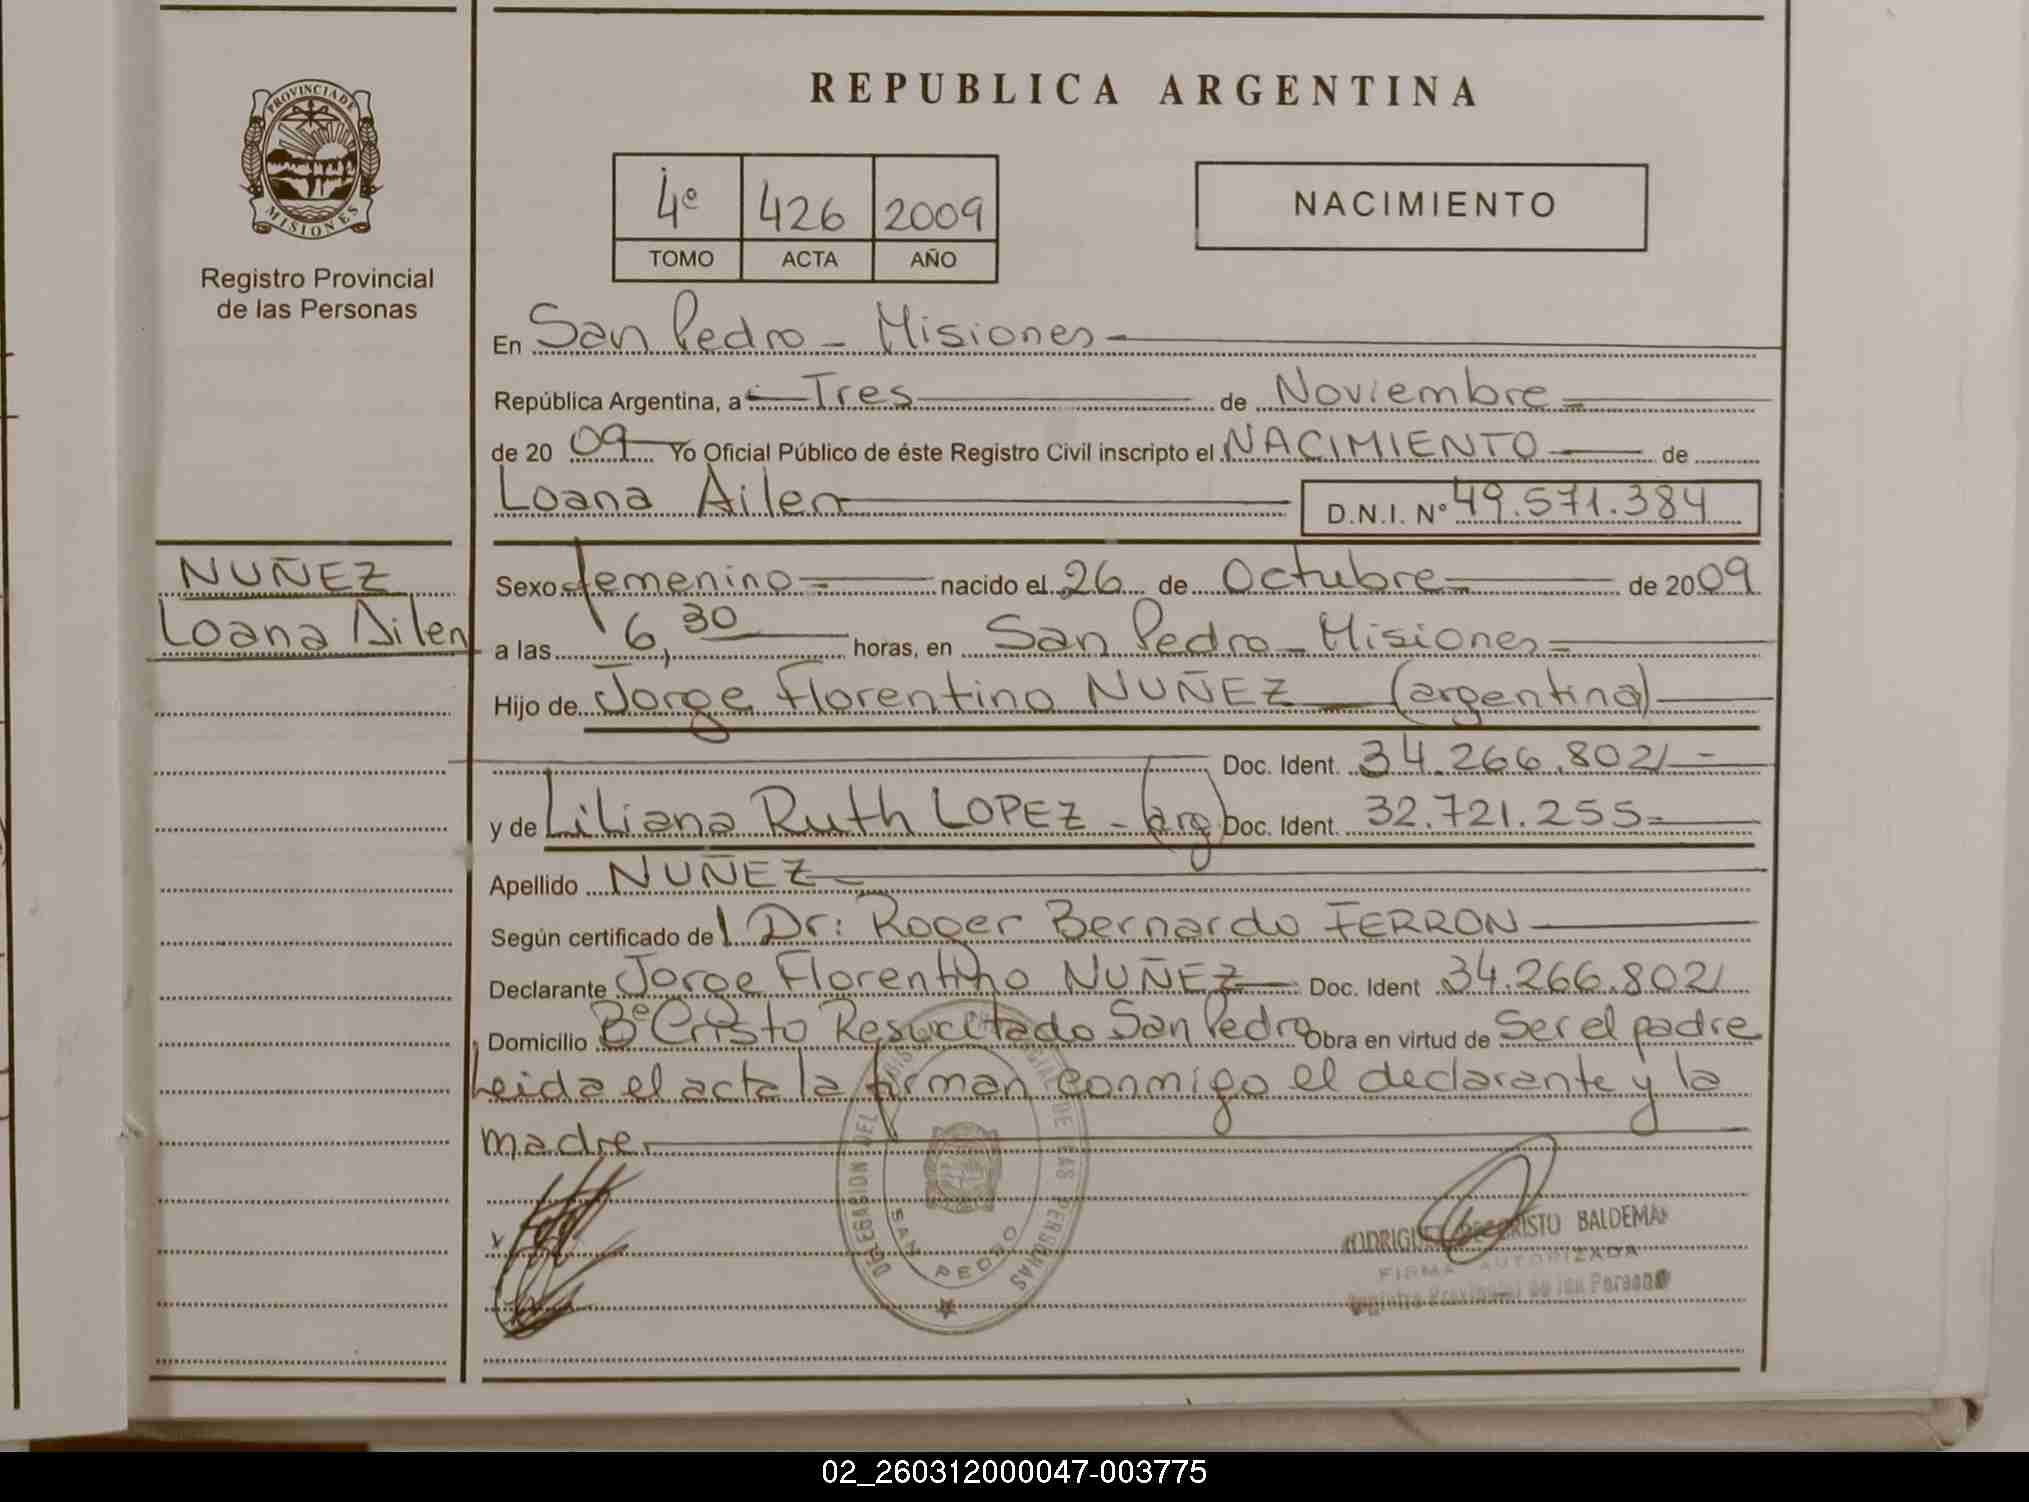 REPUBLICA ARGENTINA
PROVINCIA DE
MISIONES
Registro Provincial
de las Personas
4º 426 2009
TOMO ACTA AÑO
NACIMIENTO
En San Pedro - Misiones
República Argentina, a Tres de Noviembre
de 20 09 Yo Oficial Público de éste Registro Civil inscripto el NACIMIENTO de
Loana Ailen D.N.I. Nº 49.571.384
NUÑEZ
Loana Ailen
Sexo femenino nacido el 26 de Octubre de 2009
a las 6,30 horas, en San Pedro - Misiones
Hijo de Jorge Florentino NUÑEZ (argentina)
Doc. Ident. 34.266.802
y de Liliana Ruth LOPEZ - (arg) Doc. Ident. 32.721.255
Apellido NUÑEZ
Según certificado del Dr: Roger Bernardo FERRON
Declarante Jorge Florentino NUÑEZ Doc. Ident 34.266.802
Domicilio Bº Cristo Resucitado San Pedro Obra en virtud de Ser el padre
Leida el acta la firman conmigo el declarante y la
madre
DELEGACION DEL REGISTRO PROVINCIAL DE LAS PERSONAS
SAN PEDRO
BALDEMAR
FIRMA AUTORIZADA
Registro Provincial de las Personas
02_260312000047-003775